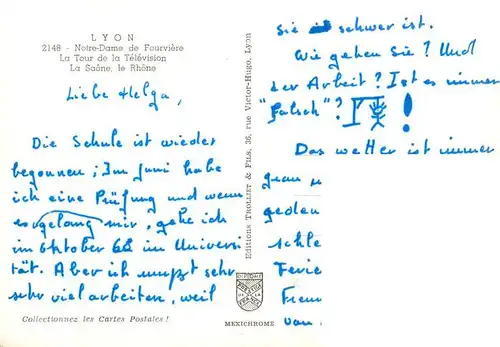 LYON
2148 - Notre-Dame de Fourvière
La Tour de la Télévision
La Saône, le Rhône
Liebe Helga,
Die Schule ist wieder
begonnen; Im Juni habe
ich eine Prüfung und wenn
es gelang mir, gehe ich
im Oktober 66 im Universi
tät. Aber ich mußt sehr
sehr viel arbeiten, weil
Collectionnez les Cartes Postales !
Editions TROLLIET & FILS, 36, rue Victor-Hugo, Lyon
MEXICHROME
sie schwer ist.
Wie gehen Sie? Und
der Arbeit? Ist es immer
"falsch"? !
Das wetter ist immer
grau
geden
schle
Ferie
Freun
von